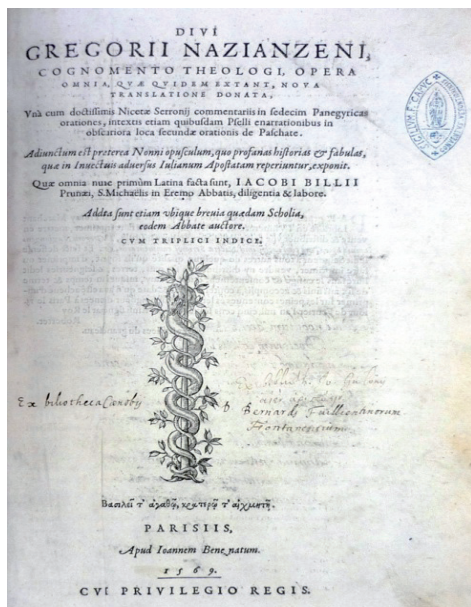 DIVI
GREGORII NAZIANZENI,
COGNOMENTO THEOLOGI, OPERA
OMNIA, QVÆ QVIDEM EXTANT, NOVA
TRANSLATIONE DONATA,
Vnà cum doctissimis Nicetæ Serronij commentariis in sedecim Panegyricas
orationes, intextis etiam quibusdam Pselli enarrationibus in
obscuriora loca secundæ orationis de Paschate.
Adiunctum est præterea Nonni opusculum, quo profanas historias & fabulas,
quæ in Inuectiuis aduersus Iulianum Apostatam reperiuntur, exponit.
Quæ omnia nunc primùm Latina facta sunt, IACOBI BILLII
Prunæi, S. Michaëlis in Eremo Abbatis, diligentia & labore.
Addita sunt etiam vbique breuia quædam Scholia,
eodem Abbate auctore.
CVM TRIPLICI INDICE.
Ex biliotheca Cænoby
b. Bernardi Fuilliantinorum
Βασιλεῖ τ' ἀγαθῷ, κρατερῷ τ' αἰχμητῇ.
PARISIIS,
Apud Ioannem Bene natum.
1569.
CVI PRIVILEGIO REGIS.